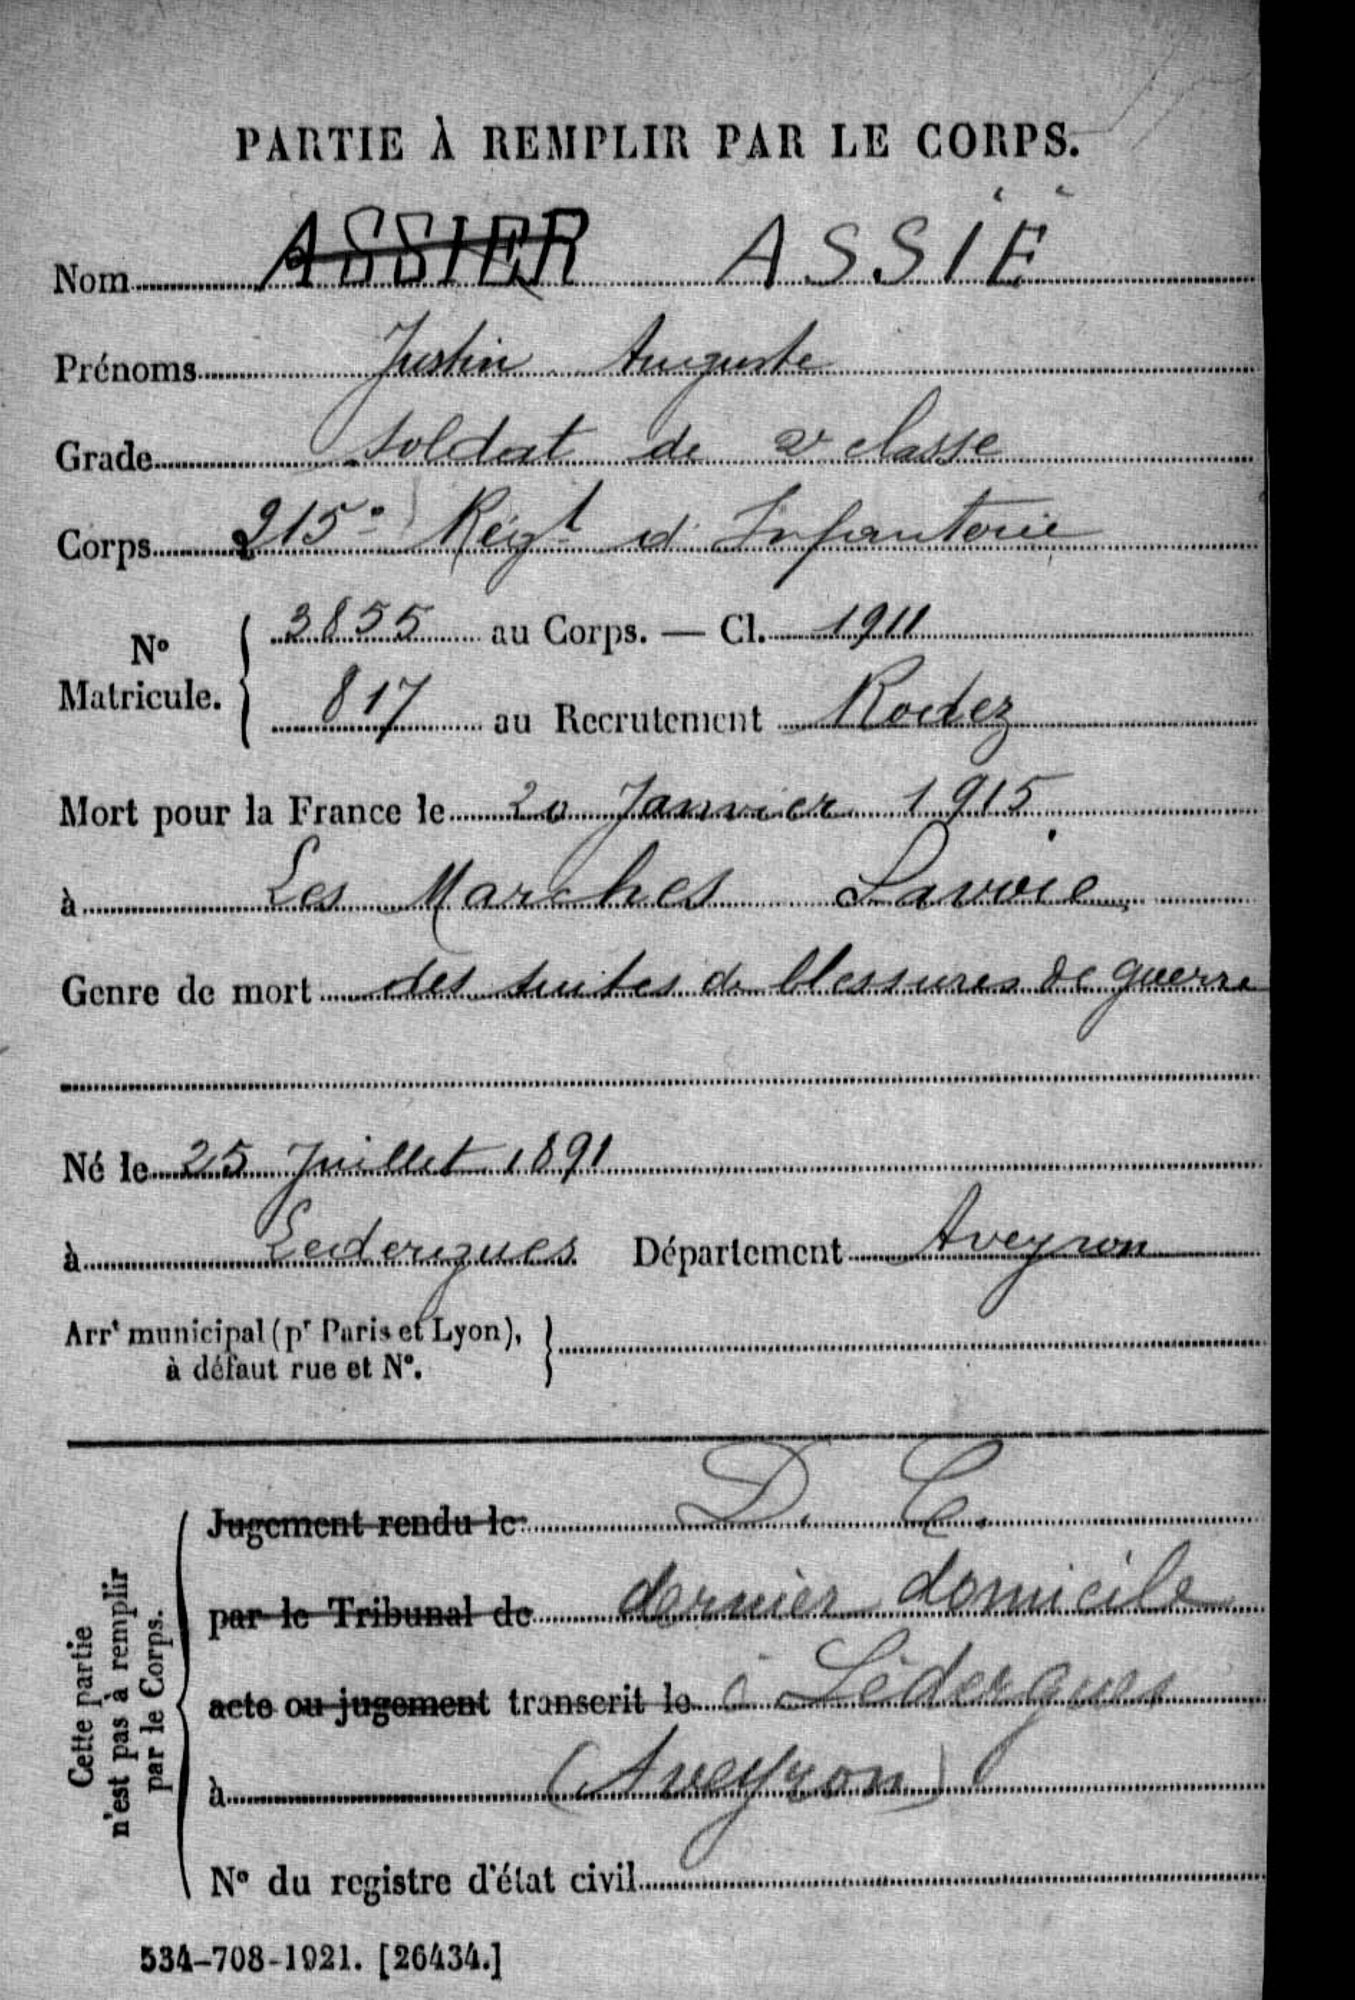 PARTIE À REMPLIR PAR LE CORPS.
Nom ASSIER ASSIÉ
Prénoms Justin Auguste
Grade soldat de 2e classe
Corps 215e Régt d'Infanterie
No Matricule. { 3855 au Corps. — Cl. 1911
817 au Recrutement Rodez
Mort pour la France le 20 Janvier 1915
à Les Marches Savoie
Genre de mort des suites de blessures de guerre
Né le 25 Juillet 1891
à Ledergues Département Aveyron
Arrt municipal (pr Paris et Lyon), }
à défaut rue et No.
Cette partie n'est pas à remplir par le Corps.
Jugement rendu le D. C.
par le Tribunal de dernier domicile
acte ou jugement transcrit le à Lédergues
à (Aveyron)
No du registre d'état civil
534-708-1921. [26434.]